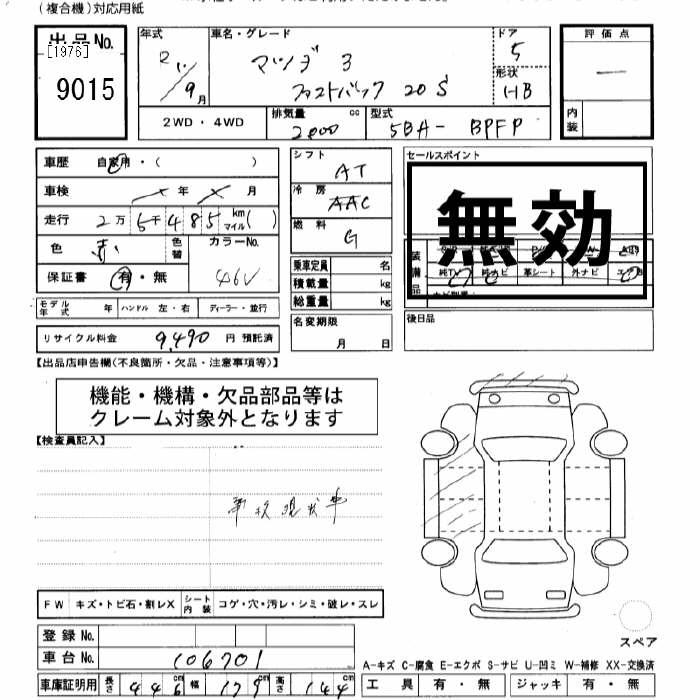 (複合機)対応用紙
出品No.
[1976]
9015
年式
2年
9月
車名・グレード
マツダ3
ファストバック 20S
ドア
5
形状
HB
評価点
ー
内装
2WD・4WD
排気量
cc
2000
型式
5BA- BPFP
車歴 自家用・( )
車検 年 月
走行 2万6千485 km マイル( )
色 赤い
色替
カラーNo.
46V
保証書 有・無
モデル年式
ハンドル 左・右
ディーラー・並行
リサイクル料金 9,490 円 預託済
シフト AT
冷房 AAC
燃料 G
乗車定員 名
積載量 kg
総重量 kg
名変期限
月 日
セールスポイント
無効
装備品
純TV 純ナビ 革シート 外ナビ
後日品
【出品店申告欄(不良箇所・欠品・注意事項等)】
機能・機構・欠品部品等は
クレーム対象外となります
【検査員記入】
事故現状車
FW キズ・トビ石・割レX
シート内装 コゲ・穴・汚レ・シミ・破レ・スレ
登録No.
車台No. 106701
車庫証明用 長さ 446cm 幅 179cm 高さ 144cm
スペア
A-キズ C-腐食 E-エクボ S-サビ U-凹ミ W-補修 XX-交換済
工具 有・無 ジャッキ 有・無